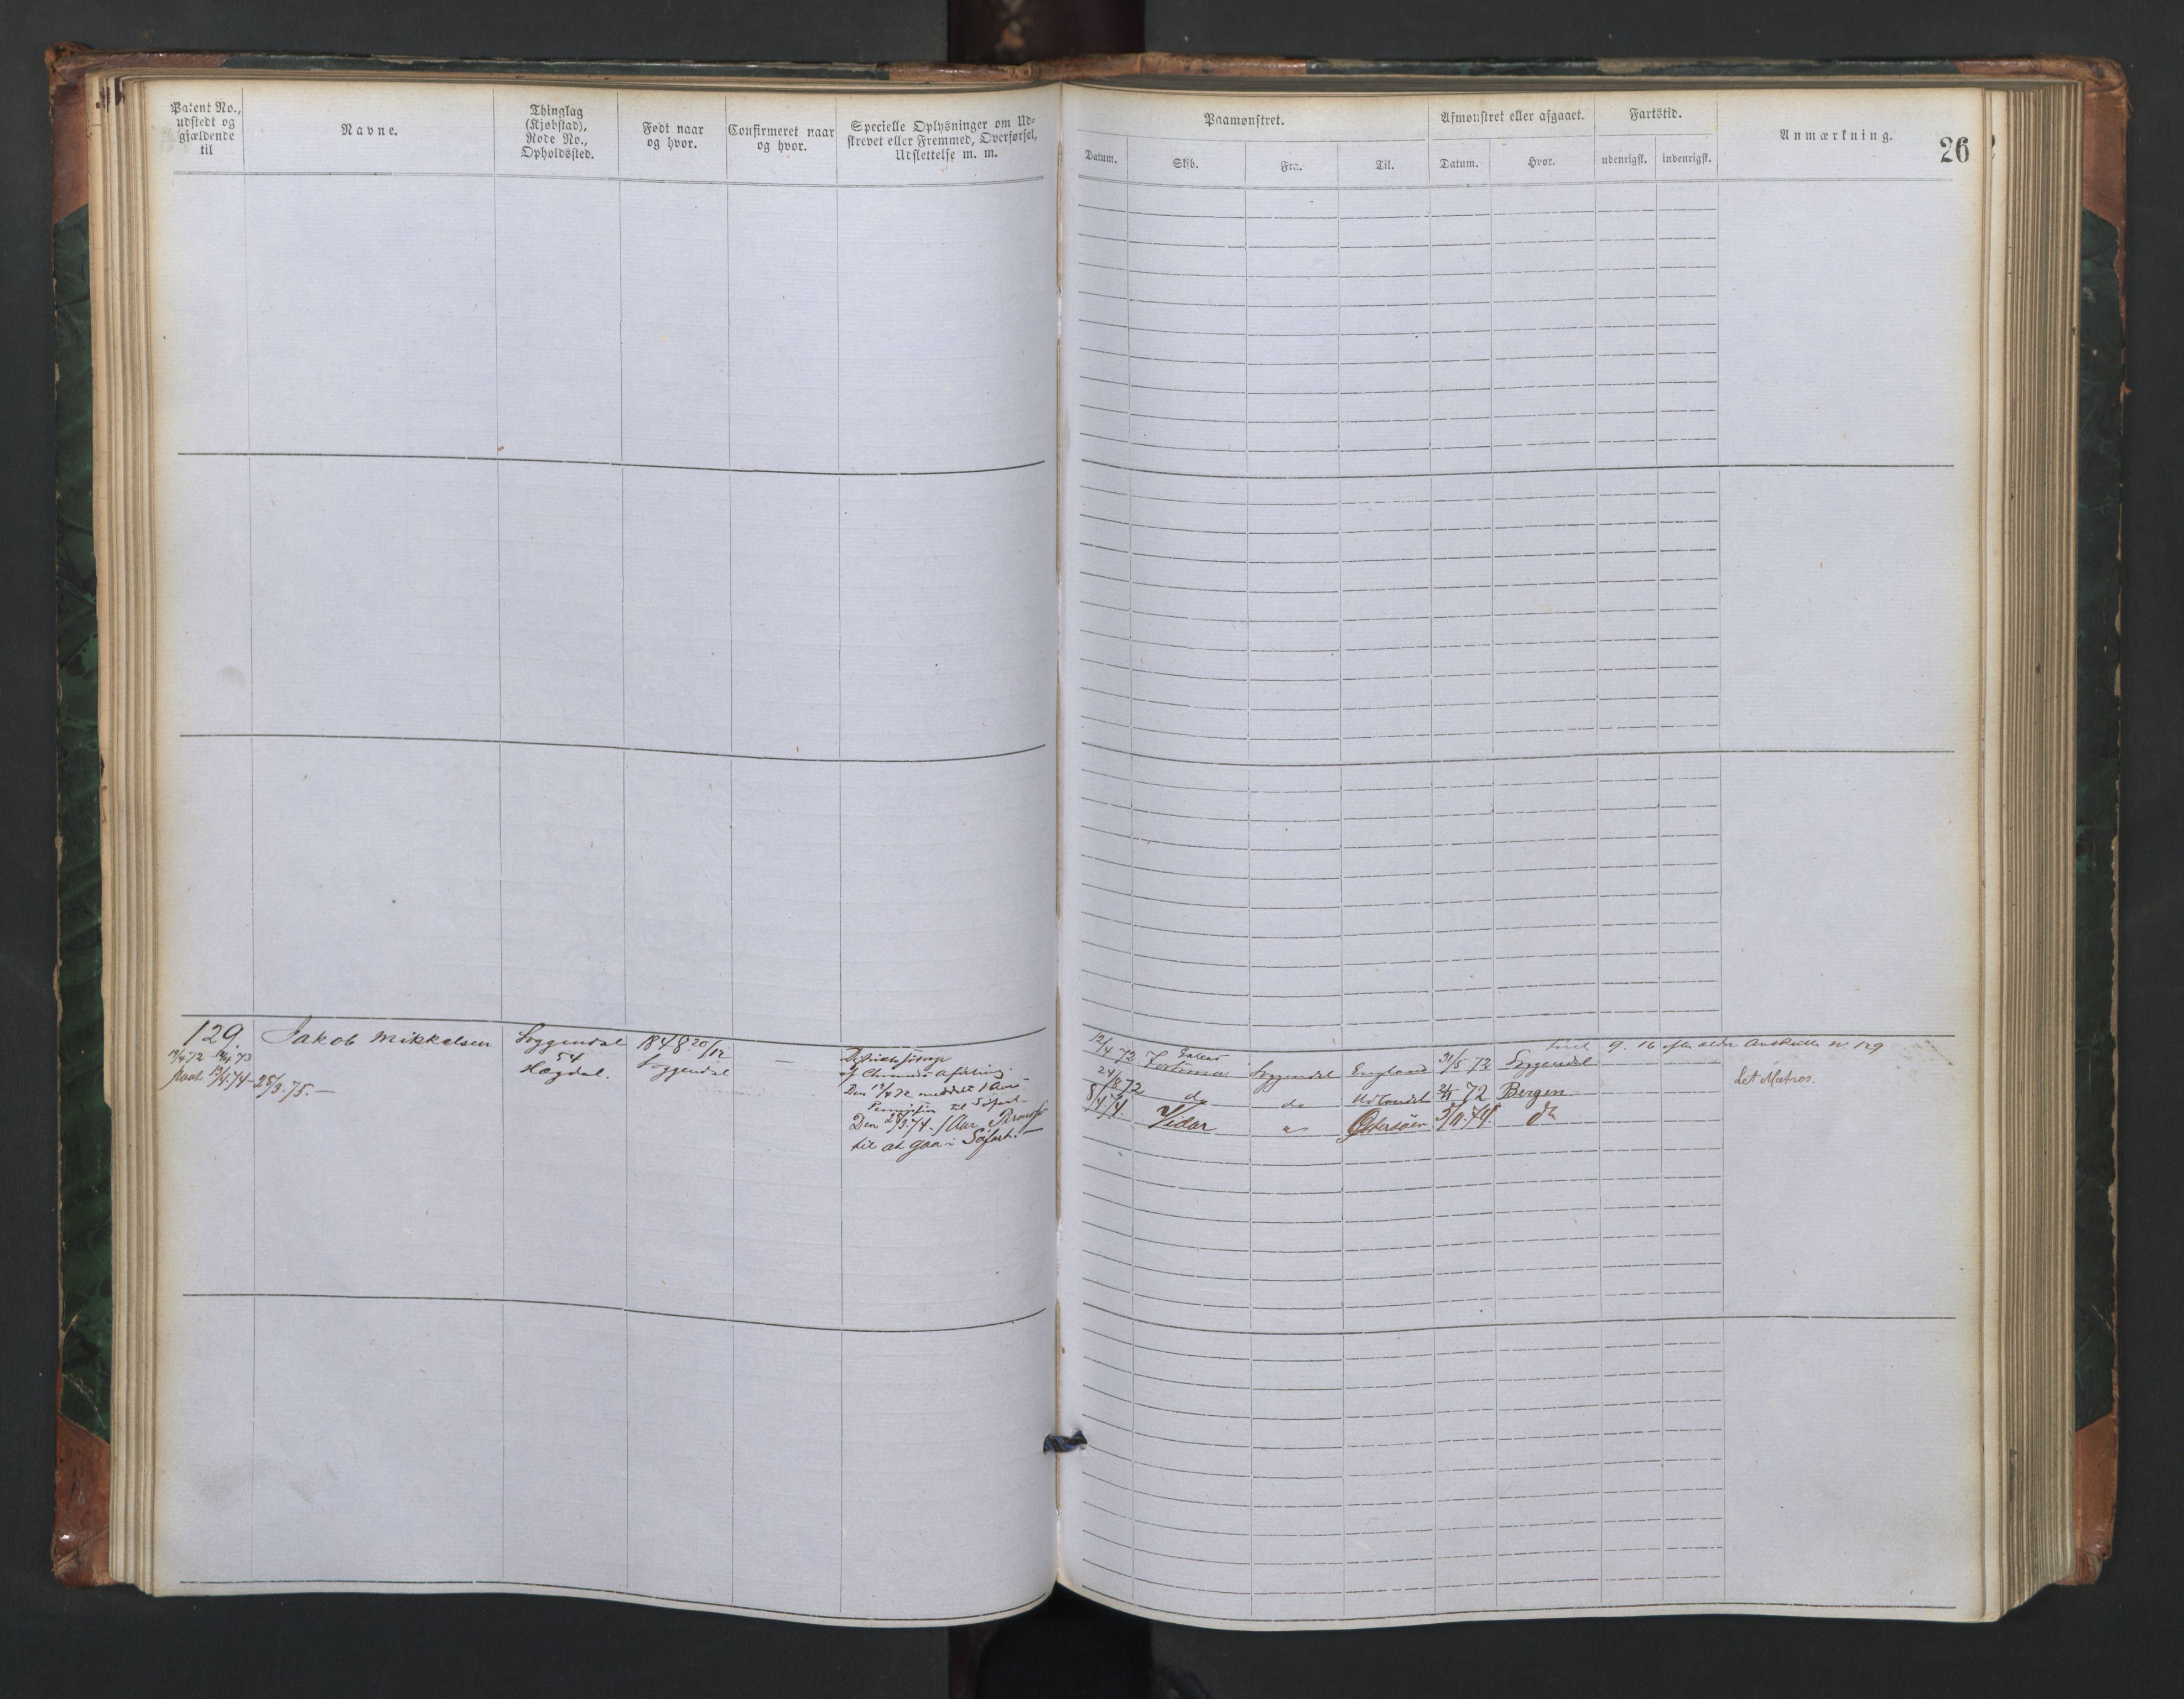 Patent No., udstedt og gjældende til
Navne.
Thinglag (Kjøbstad), Rode No., Opholdssted.
Født naar og hvor.
Confirmeret naar og hvor.
Specielle Oplysninger om Udskrevet eller Fremmed, Overførsel, Udslettelse m. m.
Paamønstret.
Afmønstret eller afgaaet.
Fartstid.
Anmærkning.
26
Datum.
Skib.
Fra.
Til.
Datum.
Hvor.
udenrigsk.
indenrigsk.
129.
12/4 72
12/4 73
12/4.74 - 25/3.75.-
Jakob Mikkelsen
Soggendal
54
Hægdal.
1848 20/12
Soggendal
—
Den 12/4 72 meddelt 1 Aars
Permission til Søfart
Den 25/3.74. 1 Aar
til at gaa i Søfart.-
12/4 72
Galeas
Fortuna
Soggendal
England
31/5 72
Soggendal
24/8 72
do
do
Udlandet
72
Bergen
8/4 74.
Vidar
"
Østersøen
5/11.74.
do
9. 16
No 129
Let Matros.